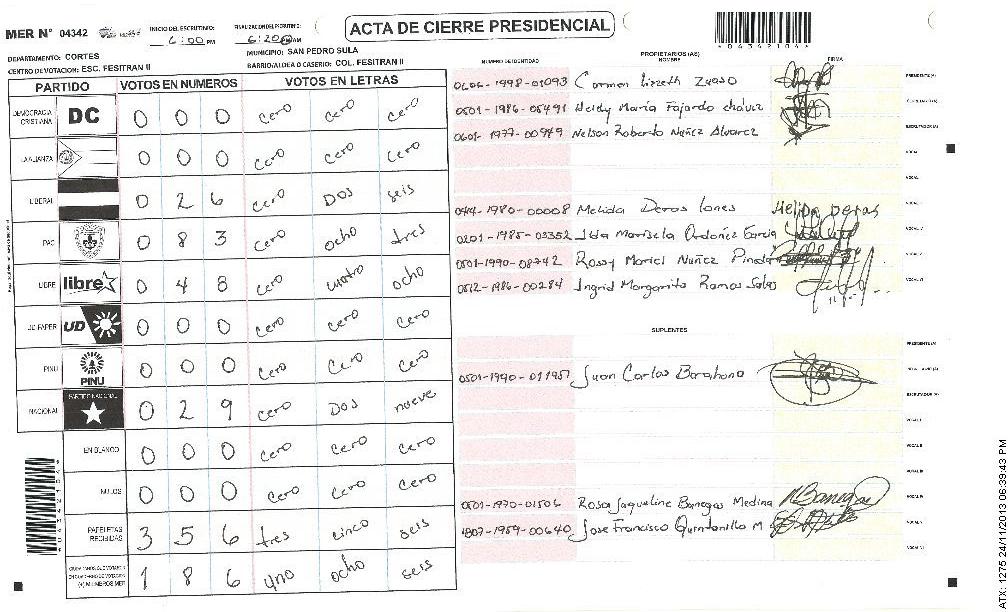 MER N° 04342
INICIO DEL ESCRUTINIO:
6:00 PM
FINALIZACION DEL ESCRUTINIO:
6:20 PM AM
ACTA DE CIERRE PRESIDENCIAL
DEPARTAMENTO: CORTES
MUNICIPIO: SAN PEDRO SULA
CENTRO DE VOTACION: ESC. FESITRAN II
BARRIO/ALDEA O CASERIO: COL. FESITRAN II
PARTIDO VOTOS EN NUMEROS VOTOS EN LETRAS
DEMOCRACIA CRISTIANA DC 0 0 0 cero cero cero
LA ALIANZA 0 0 0 cero cero cero
LIBERAL 0 2 6 cero DOS seis
PAC 0 8 3 cero ocho tres
LIBRE libre 0 4 8 cero cuatro ocho
UD-FAPER UD 0 0 0 cero cero cero
PINU PINU 0 0 0 cero cero cero
NACIONAL PARTIDO NACIONAL 0 2 9 cero DOS nueve
EN BLANCO 0 0 0 cero cero cero
NULOS 0 0 0 cero cero cero
PAPELETAS RECIBIDAS 3 5 6 tres cinco seis
CIUDADANOS QUE VOTARON EN CUADERNO DE VOTACION (+) MIEMBROS MER 1 8 6 uno ocho seis
PROPIETARIOS (AS)
NUMERO DE IDENTIDAD NOMBRE FIRMA
0606-1998-01093 Carmen Lizzeth Zuaso PRESIDENTE (A)
0501-1986-05491 Heldy María Fajardo chávez SECRETARIO (A)
0601-1977-00949 Nelson Roberto Nuñez Alvarez ESCRUTADOR (A)
VOCAL
VOCAL
Melida Deras Melida Deras
0201-1985-03352 Ilda Marisela Ordoñez Garcia
0501-1990-08742 Rossy Mariel Nuñez Pineda
0512-1986-00284 Ingrid Margarita Ramos Salas
SUPLENTES
PRESIDENTE (A)
0501-1990-011957 Juan Carlos Barahona SECRETARIO (A)
ESCRUTADOR (A)
VOCAL I
VOCAL II
VOCAL III
0501-1970-01506 Rosa Jaqueline Banegas Medina VOCAL IV
1807-1959-00640 Jose Francisco Quintanilla M VOCAL V
VOCAL VI
ATX: 1275 24/11/2013 06:39:43 PM